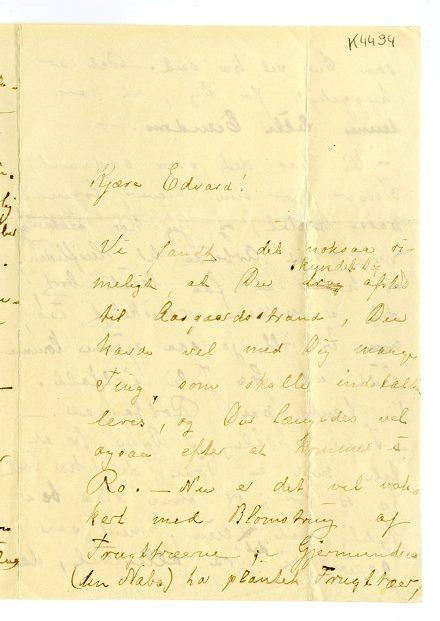 K4494
Kjære Edvard!
Vi fandt det noksaa ri-
meligt, at Du skyndte dig afsted
til Aasgaardsstrand, Du
havde vel med Dig mange
Ting, som skulle indstalle-
leres, og Du længtedes vel
ogsaa efter at komme i
Ro. — Nu er det vel vak-
kert med Blomstring af
Frugttræerne; Gjermundsen
(din Nabo) ha plantet Frugttrær,